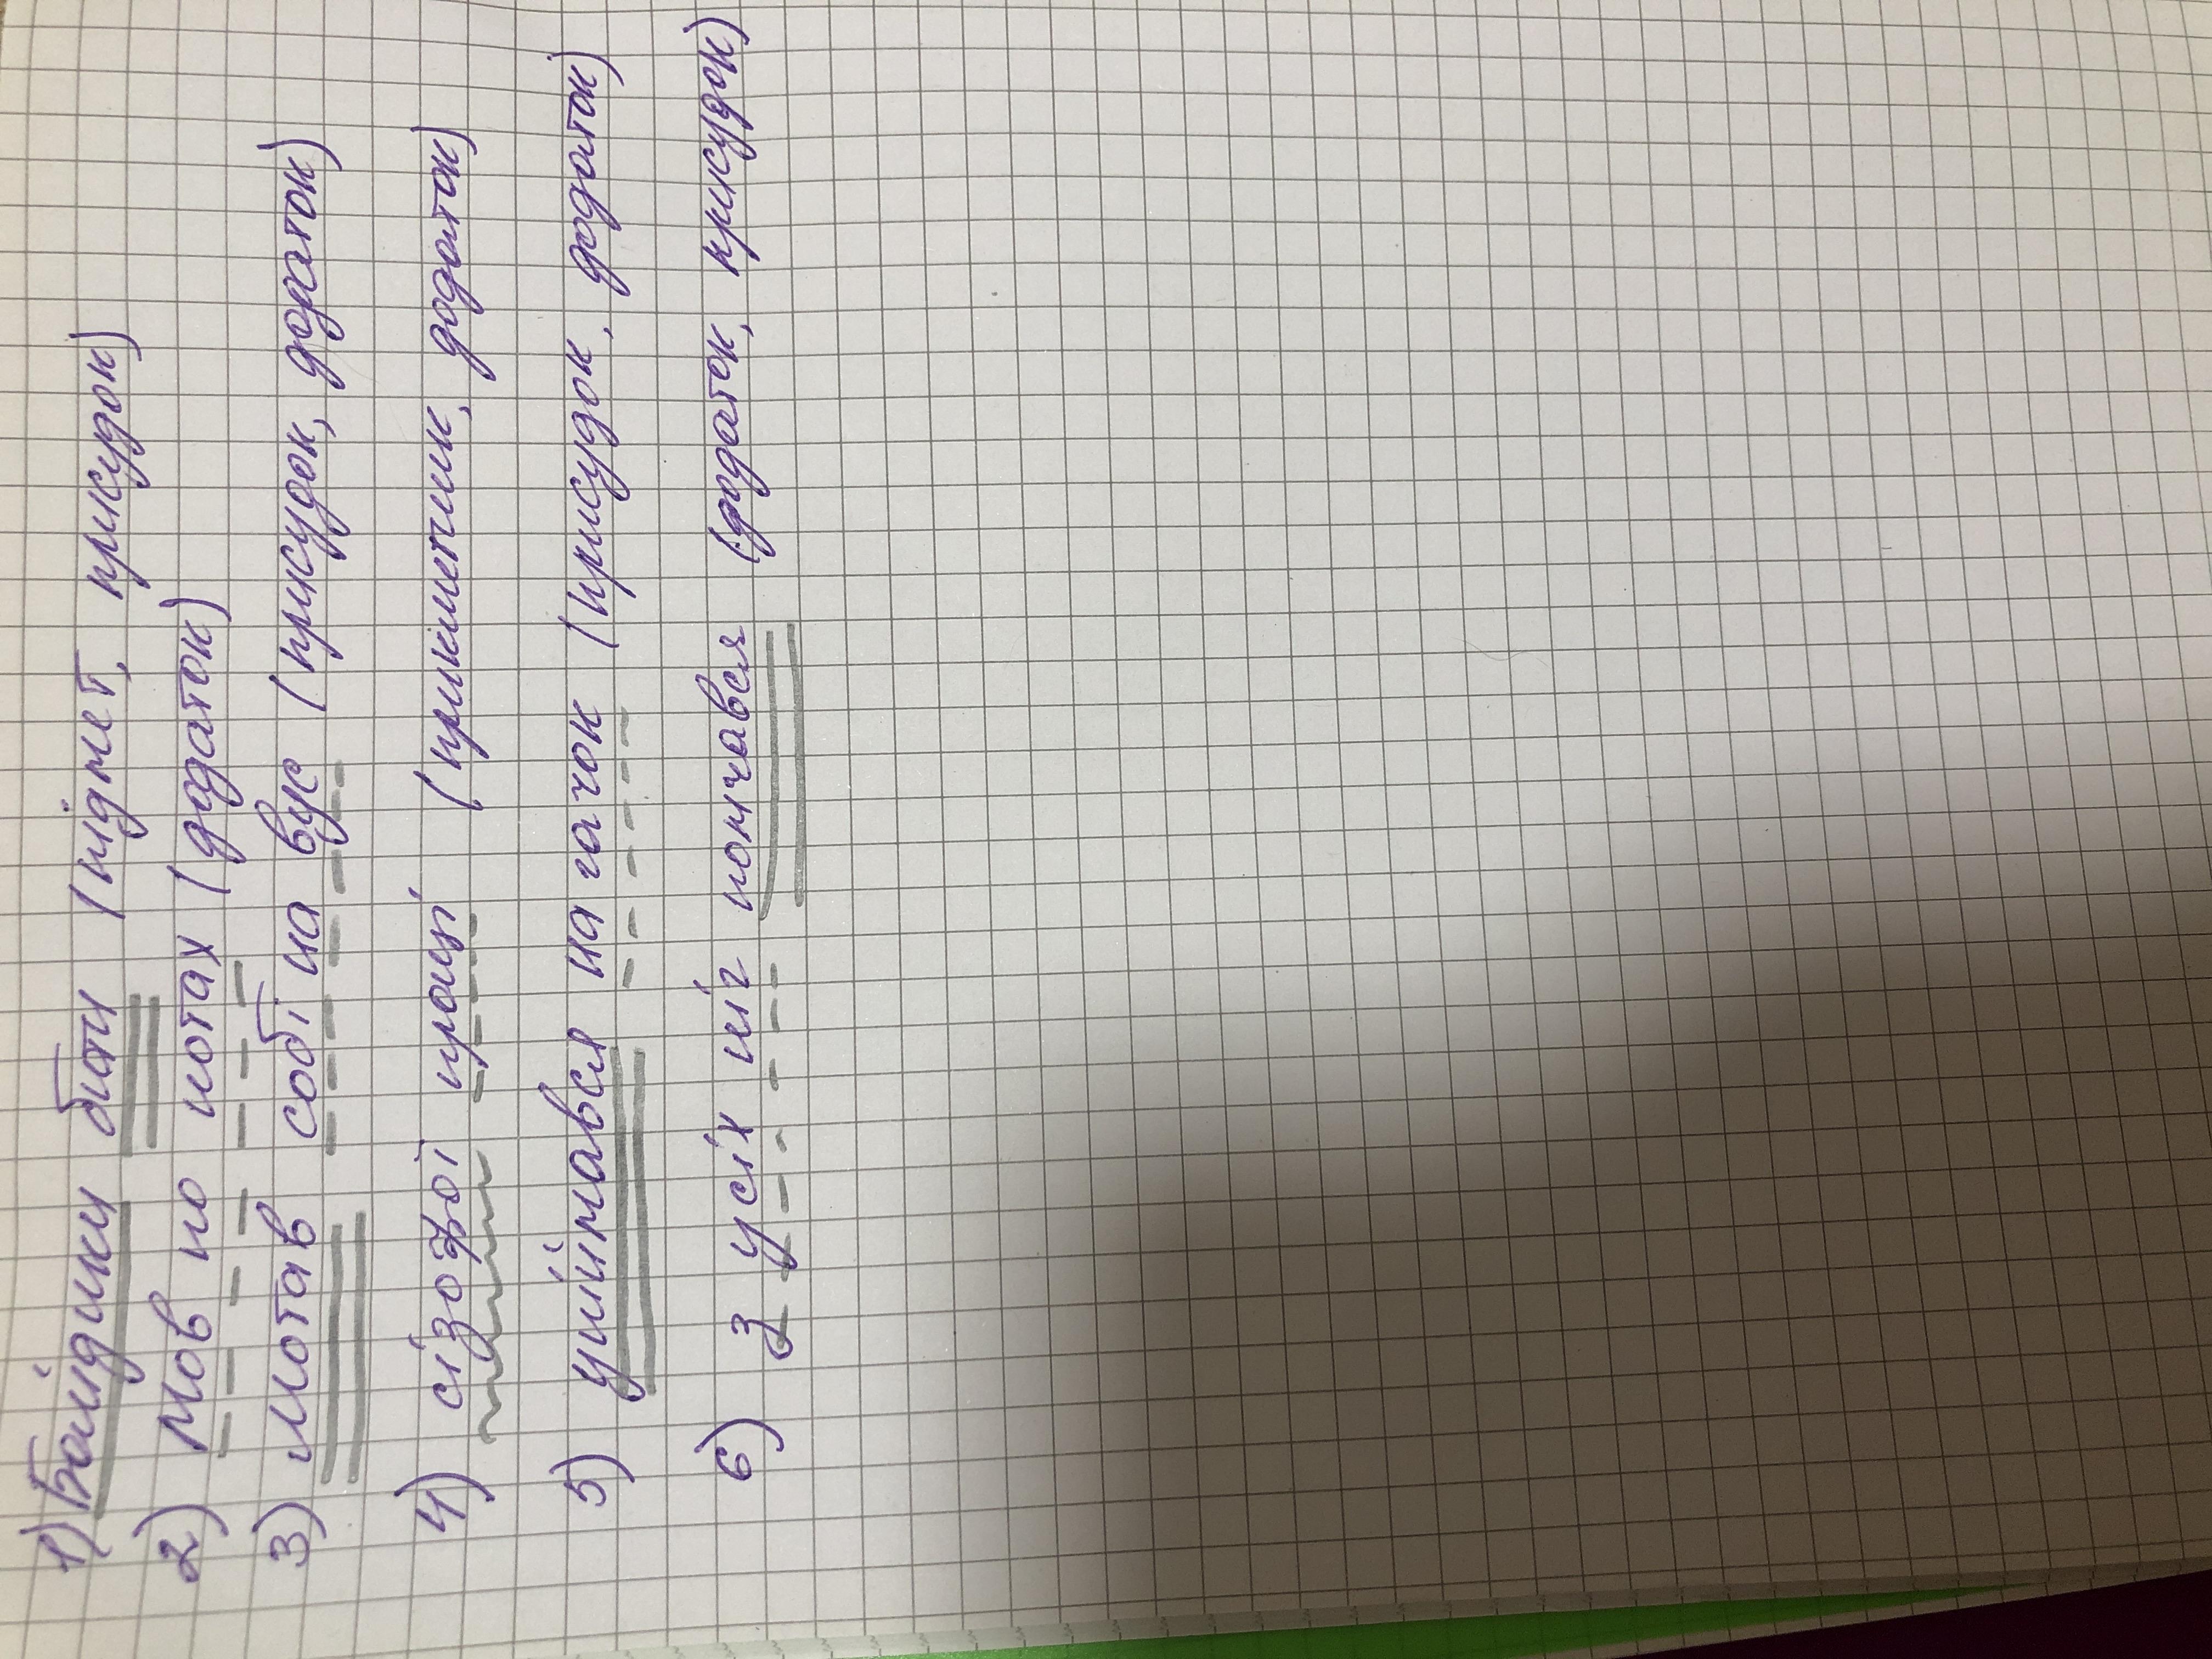 1) Байдики бити (підмет, присудок)
2) Мов по нотах (додаток)
3) мотав собі на вус (присудок, додаток)
4) сізофої праці (прикметник, додаток)
5) упіймався на гачок (присудок, додаток)
6) з усіх ніг помчався (додаток, присудок)